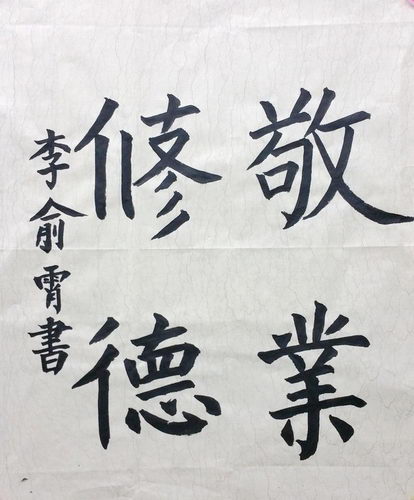 敬業
修德
李俞霄書